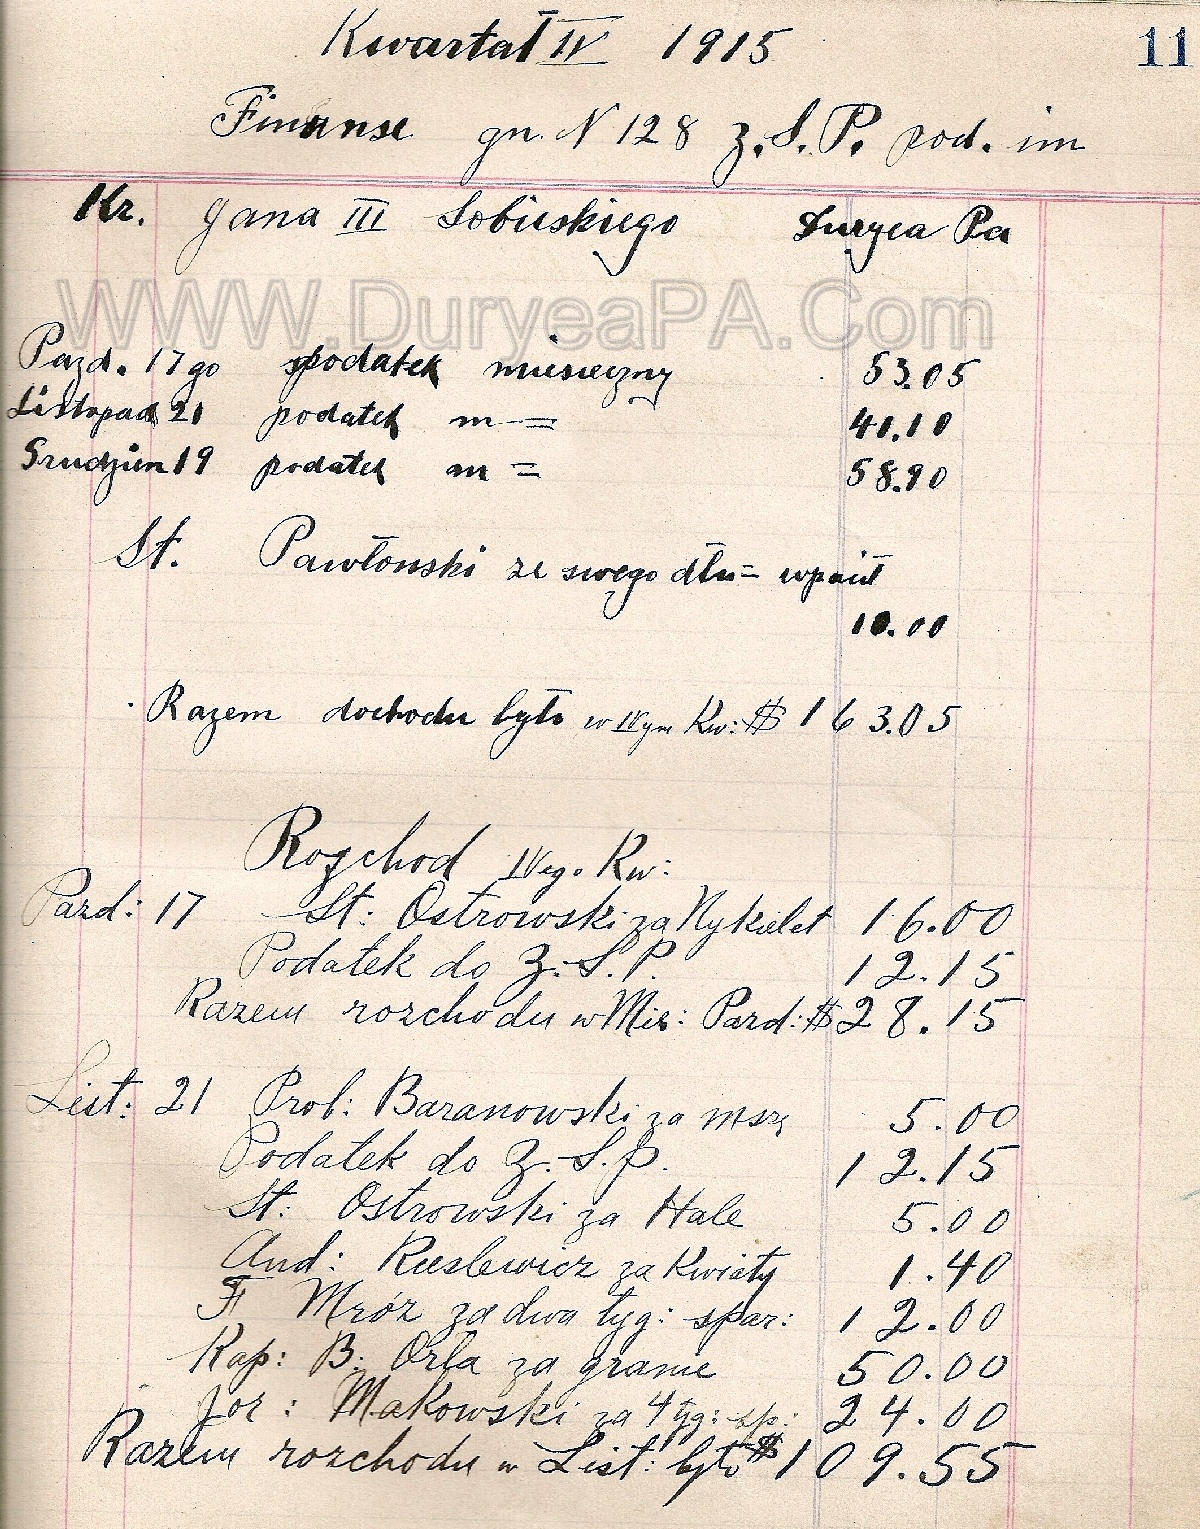 Kwartał IV 1915
11
Finanse gn. N 128 Z.S.P. pod. im
Kr. Jana III Sobieskiego Duryea Pa
WWW.DuryeaPA.Com
Pazd. 17go podatek miesieczny 53.05
Listopad 21 podatek m = 41.10
Grudzien 19 podatek m = 58.90
St. Pawłonski ze swego dłu= wpaił
10.00
Razem dochodu było w IVym Kw: $163.05
Rozchod IVeg. Kw:
Pazd: 17 St: Ostrowski za 16.00
Podatek do Z.S.P. 12.15
Razem rozchodu w Mis: Pazd: $28.15
List: 21 Prob: Baranowski za mszę 5.00
Podatek do Z.S.P. 12.15
St: Ostrowski za Hale 5.00
And: za Kwiaty 1.40
F Mróz za dwa tyg: spar: 12.00
Kap: B: Orła za granie 50.00
Joz: Makowski za 4 tyg: sp: 24.00
Razem rozchodu w List: było $109.55